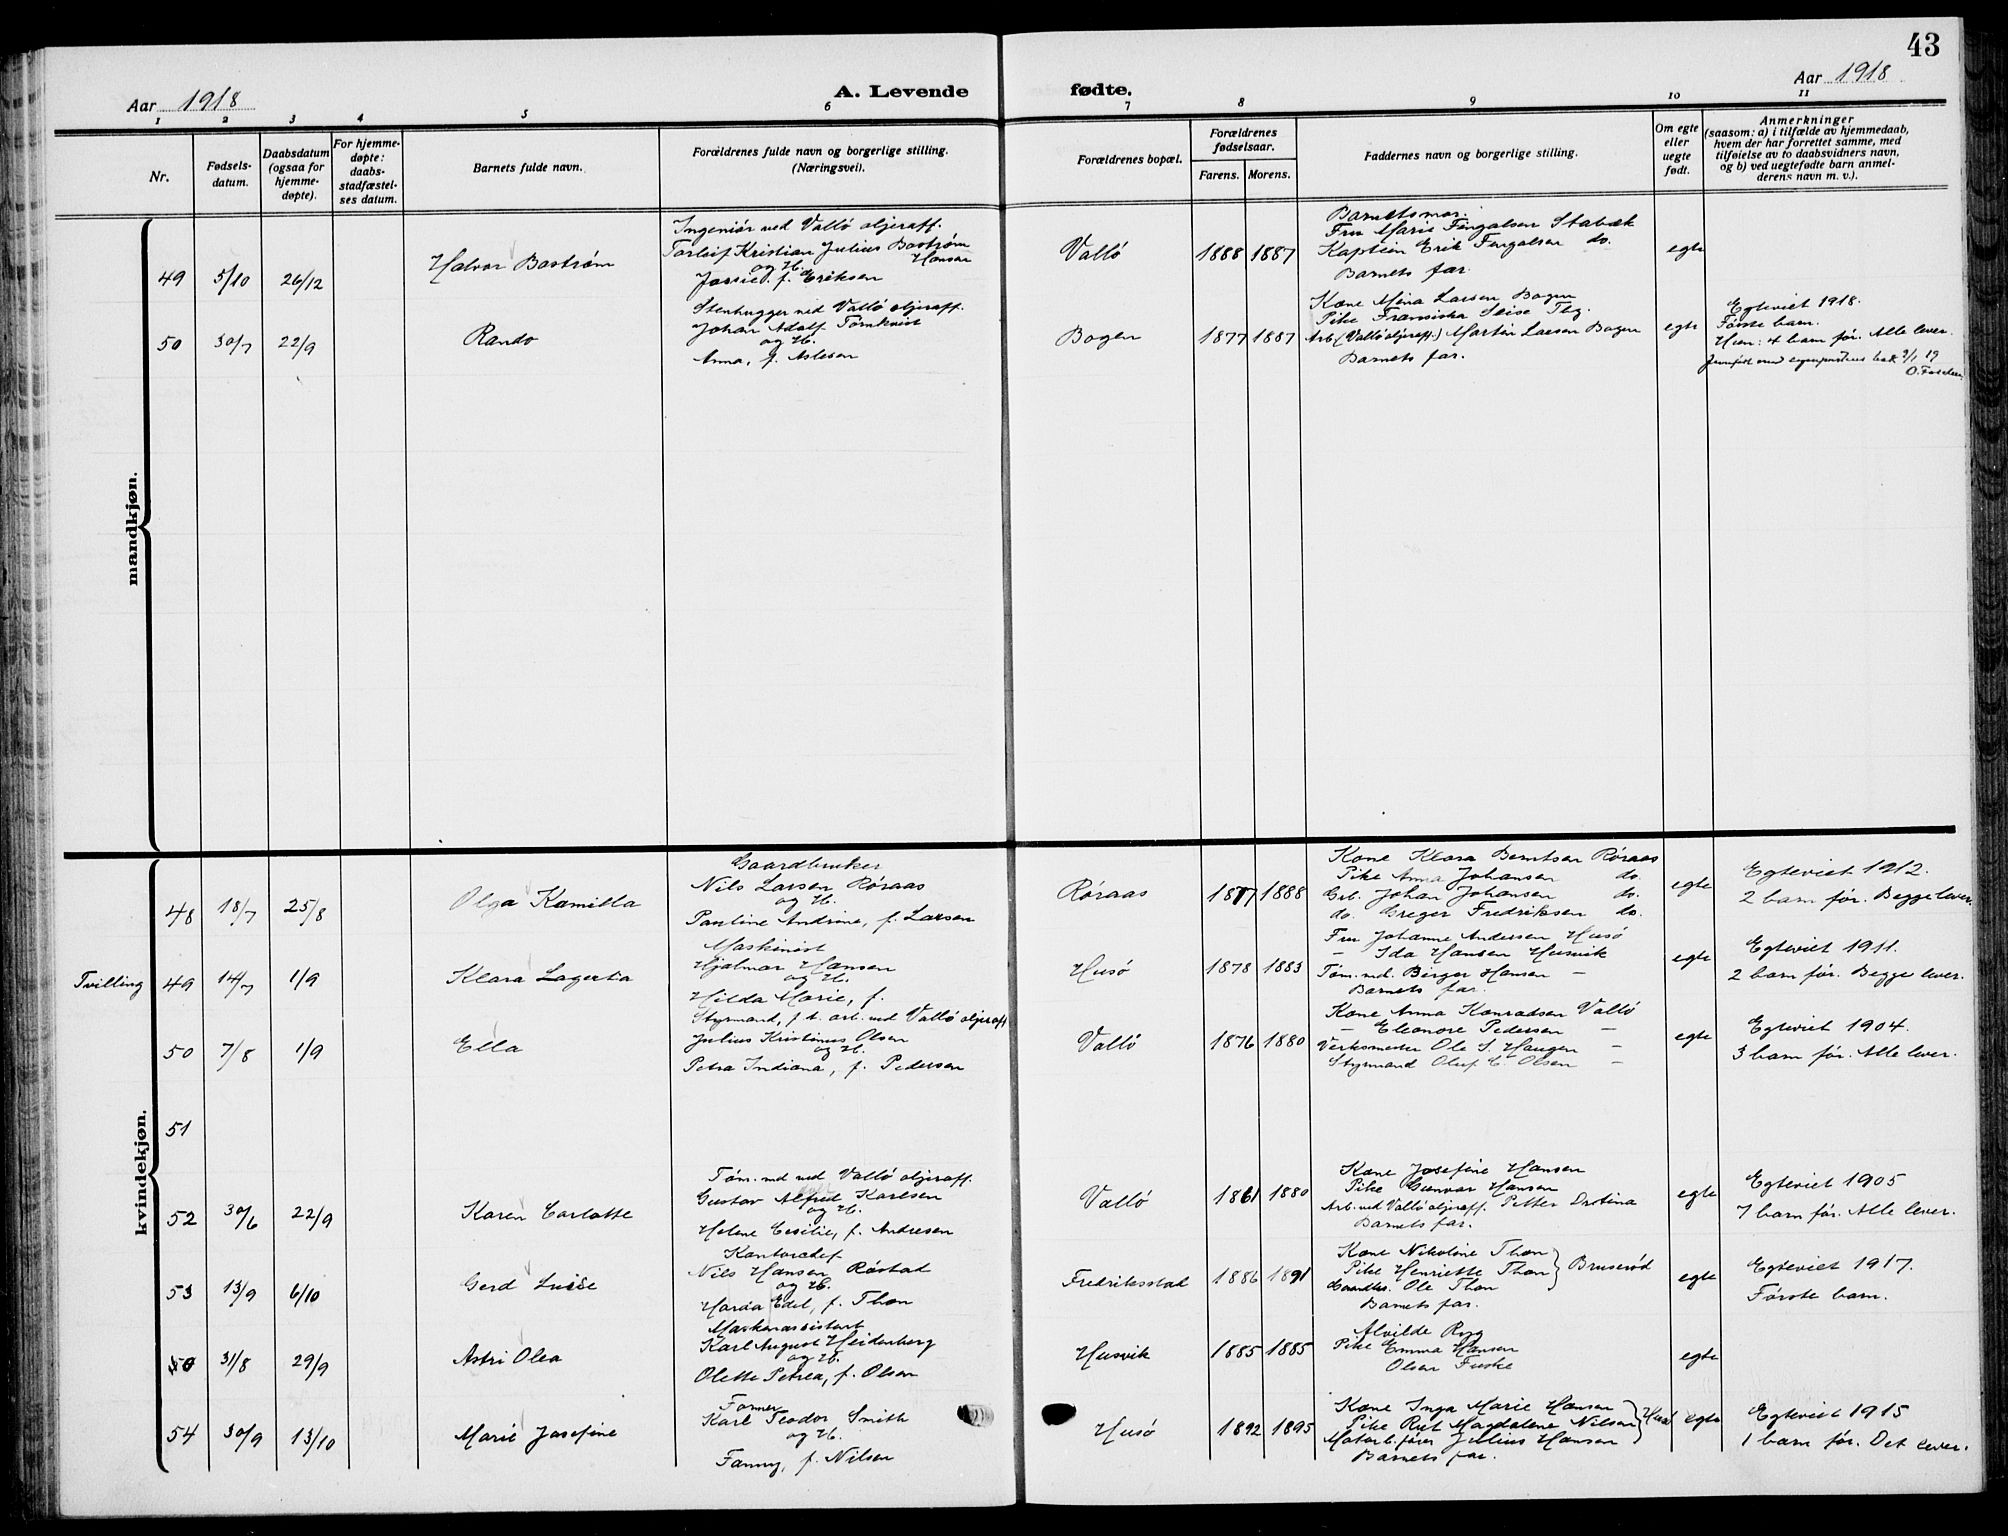 43
Aar 1918
A. Levende
fødte.
Aar 1918
1 2 3 4 5 6 7 8 9 10 11
Nr.
Fødsels-
datum.
Daabsdatum
(ogsaa for
hjemme-
døpte).
For hjemme-
døpte:
daabs-
stadfæstel-
ses datum.
Barnets fulde navn.
Forældrenes fulde navn og borgerlige stilling.
(Næringsvei).
Forældrenes bopæl.
Forældrenes
fødselsaar.
Farens. Morens.
Faddernes navn og borgerlige stilling.
Om egte
eller
uegte
født.
Anmerkninger
(saasom: a) i tilfælde av hjemmedaab,
hvem der har forrettet samme, med
tilføielse av to daabsvidners navn,
og b) ved uegtefødte barn anmel-
derens navn m. v.).
mandkjøn.
49 5/10 26/12
Halvor Bostrøm
Ingeniør ved Vallö oljeraff.
Torleif Kristian Julius Bostrøm
og H. Hansen
Jossie f. Eriksen
Vallö
1888 1887
Barnets mor.
Fru Marie Fingalsen Stabæk
Kaptein Erik Fingalsen do.
Barnets far.
egte
50 30/7 22/9
Rando
Stenhugger ved Vallö oljeraff.
Johan Adolf Törnkvist
og H.
Anna, f. Aslesen
Bogen
1877 1887
Kone Mina Larsen Bogen
Pike Fransiska Seise Tbg.
Arb. (Vallö oljeraff.) Martin Larsen Bogen
Barnets far.
egte
Egteviet 1918.
Første barn.
Hun: 4 barn før. Alle lever.
kvindekjøn.
48 18/7 25/8
Olga Kamilla
Gaardbruker
Nils Larsen Røraas
og H.
Pauline Andrine, f. Larsen
Røraas
1877 1888
Kone Klara Berntsen Røraas
Pike Anna Johansen do.
Grb. Johan Johansen do.
do. Greger Fredriksen do.
egte
Egteviet 1912.
2 barn før. Begge lever.
Tvilling 49 14/7 1/9
Klara Lagerta
Maskinist
Hjalmar Hansen
og H.
Hilda Marie, f.
Husö
1878 1883
Fru Johanne Andersen Husö
– Ida Hansen Husvik
Töm.md. Birger Hansen –
Barnets far.
egte
Egteviet 1911.
2 barn før. Begge lever.
50 7/8 1/9
Ella
Styrmand, f. t. arb. ved Vallö oljeraff
Julius Kristinus Olsen
og H.
Petra Indiana, f. Pedersen
Vallö
1876 1880
Kone Anna Konradsen Vallö
– Eleonore Pedersen –
Verksmester Ole S. Haugen –
Styrmand Oluf C. Olsen –
egte
Egteviet 1904.
3 barn før. Alle lever.
51
52 30/6 22/9
Karen Carlotte
Töm.md ved Vallö oljeraff.
Gustav Alfred Karlsen
og H.
Helene Cesilie, f. Andresen
Vallö
1861 1880
Kone Josefine Hansen
Pike Gunvor Hansen
Arb. ved Vallö oljeraff. Petter Drotina
Barnets far.
egte
Egteviet 1905
7 barn før. Alle lever.
53 13/9 6/10
Gerd Luise
Kontorchef
Nils Hansen Røstad
og H.
Harda Edel, f. Thon
Fredriksstad
1886 1891
Kone Nikoline Thon
Pike Henriette Thon
Gaardbr. Ole Thon
Bruserød
Barnets far.
egte
Egteviet 1917.
Første barn.
50 31/8 29/9
Astri Olea
Maskinassistent
Karl August Heidenberg
og H.
Olette Petrea, f. Olsen
Husvik
1885 1885
Alvilde Ryg
Pike Emma Hansen
Olsen Fuske
egte
54 30/9 13/10
Marie Josefine
Former
Karl Teodor Smith
og H.
Fanny, f. Nilsen
Husö
1892 1895
Kone Inga Marie Hansen
Pike Rut Magdalene Nilsen
Motorb.fører Julius Hansen
Husö
Barnets far.
egte
Egteviet 1915
1 barn før. Det lever.